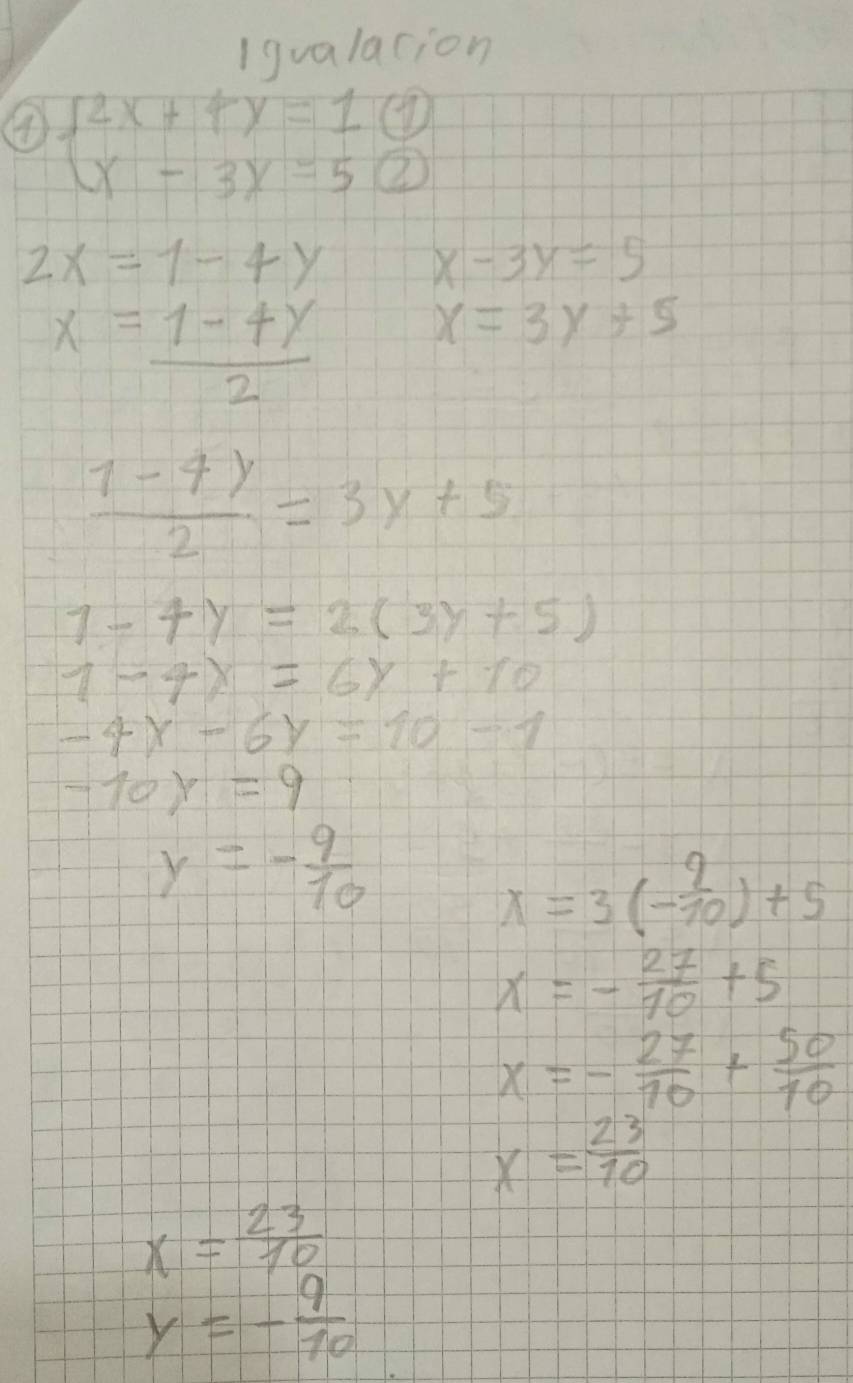 Igualacion
① { 2x + 4y = 1 ①
x - 3y = 5 ②
2x = 1 - 4y    x - 3y = 5
x = (1 - 4y)/2    x = 3y + 5
(1 - 4y)/2 = 3y + 5
1 - 4y = 2(3y + 5)
1 - 4y = 6y + 10
-4y - 6y = 10 - 1
-10y = 9
y = -9/10
x = 3(-9/10) + 5
x = -27/10 + 5
x = -27/10 + 50/10
x = 23/10
x = 23/10
y = -9/10